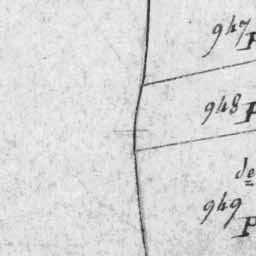 947 P
948 P
de
949 P